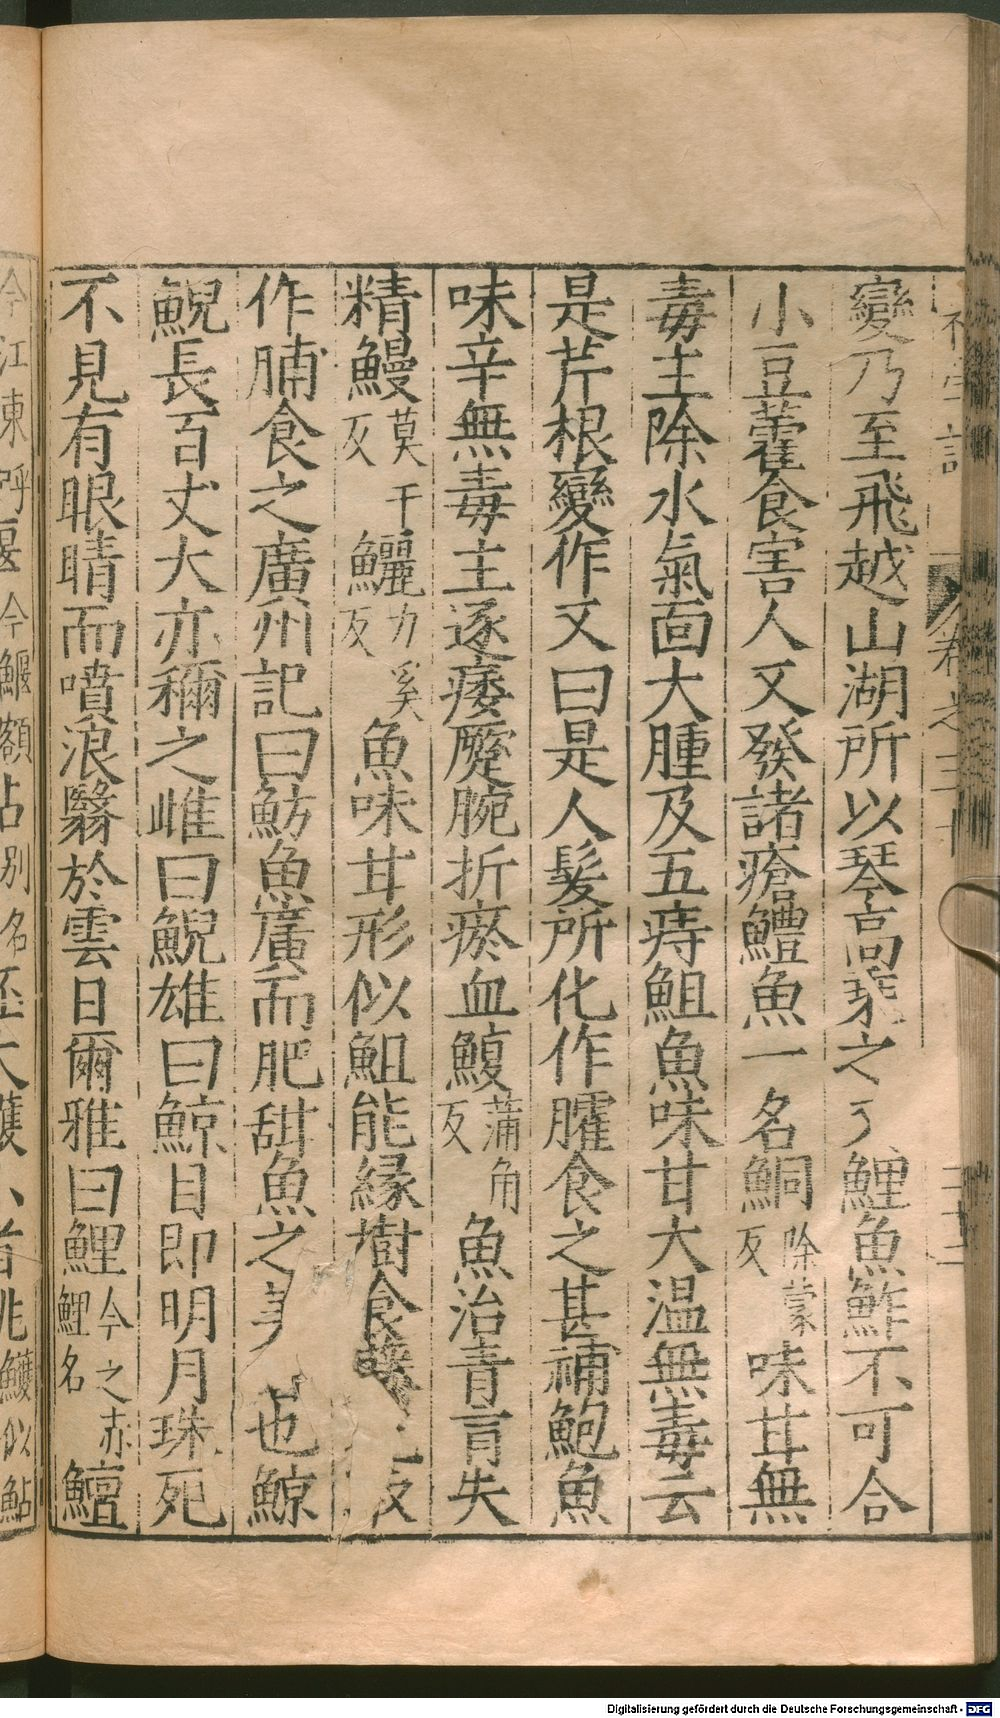 變乃至飛越山湖所以琴高乘之 鯉魚鮓不可合
小豆藿食害人又發諸瘡鱧魚一名鮦除蒙反味甘無
毒主除水氣面大腫及五痔鮰魚味甘大温無毒云
是芹根變作又曰是人髮所化作臛食之甚補鮑魚
味辛無毒主逐痿蹷腕折瘀血鰒蒲角反魚治青盲失
精鰻莫干反鱺力奚反魚味甘形似䱉能緣樹食藤 反
作脯食之廣州記曰魴魚廣而肥甜魚之 也鯨
鯢長百丈大亦稱之雌曰鯢雄曰鯨目即明月珠死
不見有眼睛而噴浪翳於雲日爾雅曰鯉今之赤鯉名鱣
今江東呼 今鰋額 别名 大鱯小者 鱯似鮎
卷之三十
Digitalisierung gefördert durch die Deutsche Forschungsgemeinschaft - DFG